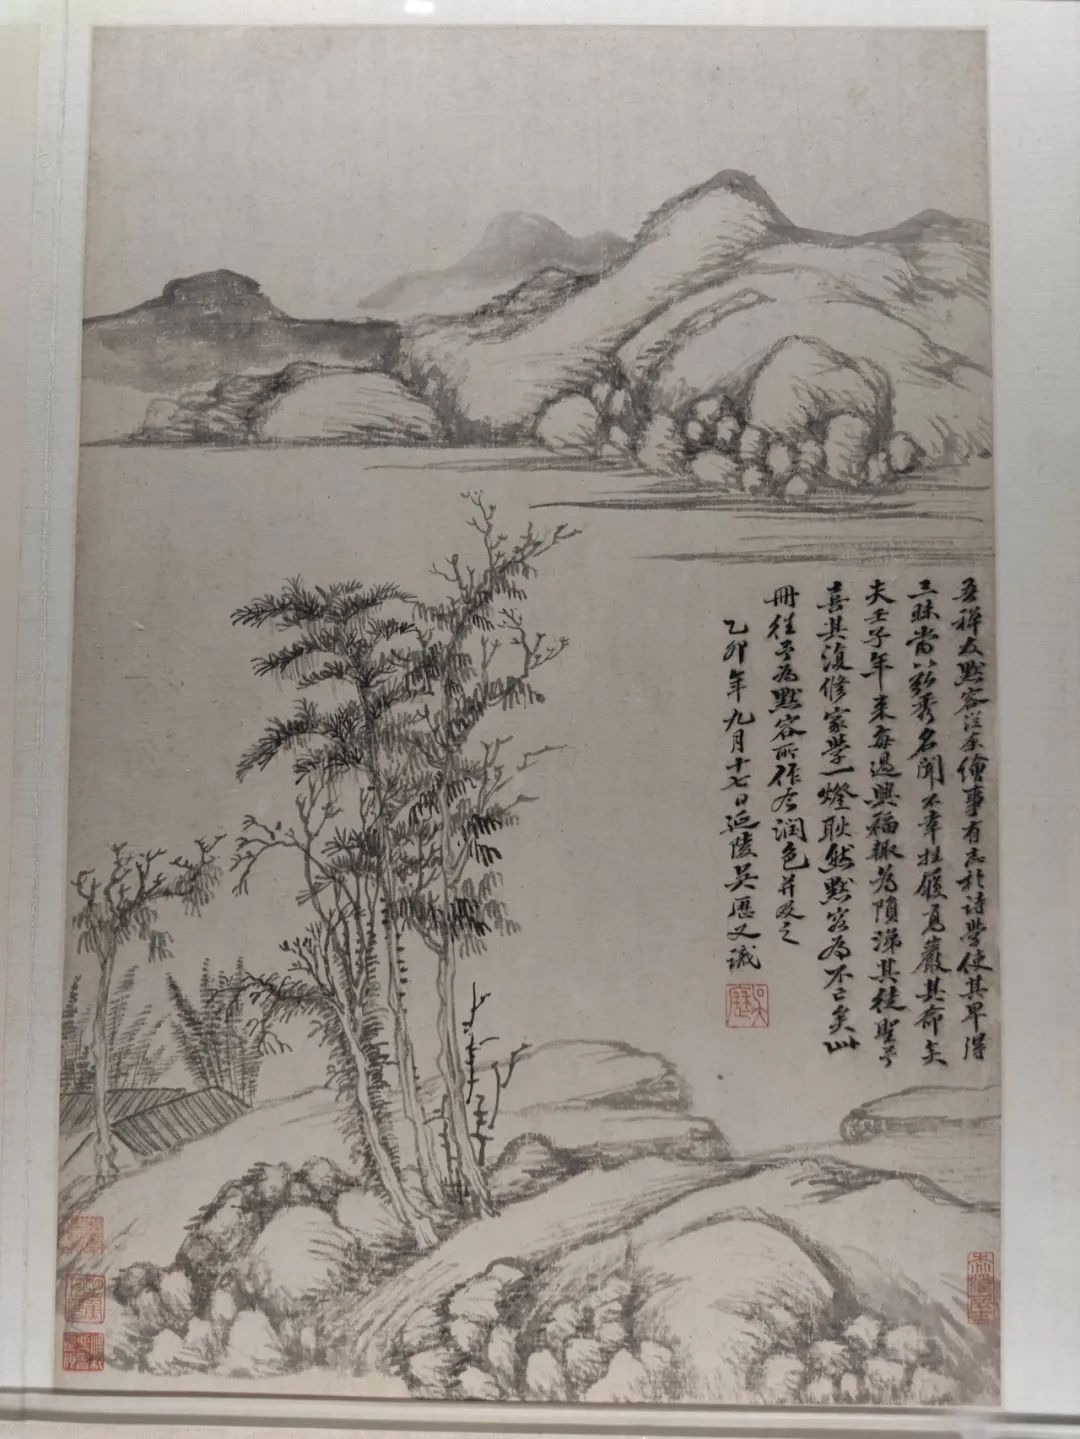 吾禪友默容從余繪事有志於詩學使其早得
三昧當以穎秀名聞不幸挂履夏巖其命矣
夫壬子年來每過興福輒為隕涕其徒聖予
喜其復修家學一燈耿然默容為不亡矣此
冊往予為默容所作今潤色并及之
乙卯年九月十七日延陵吳歷又識